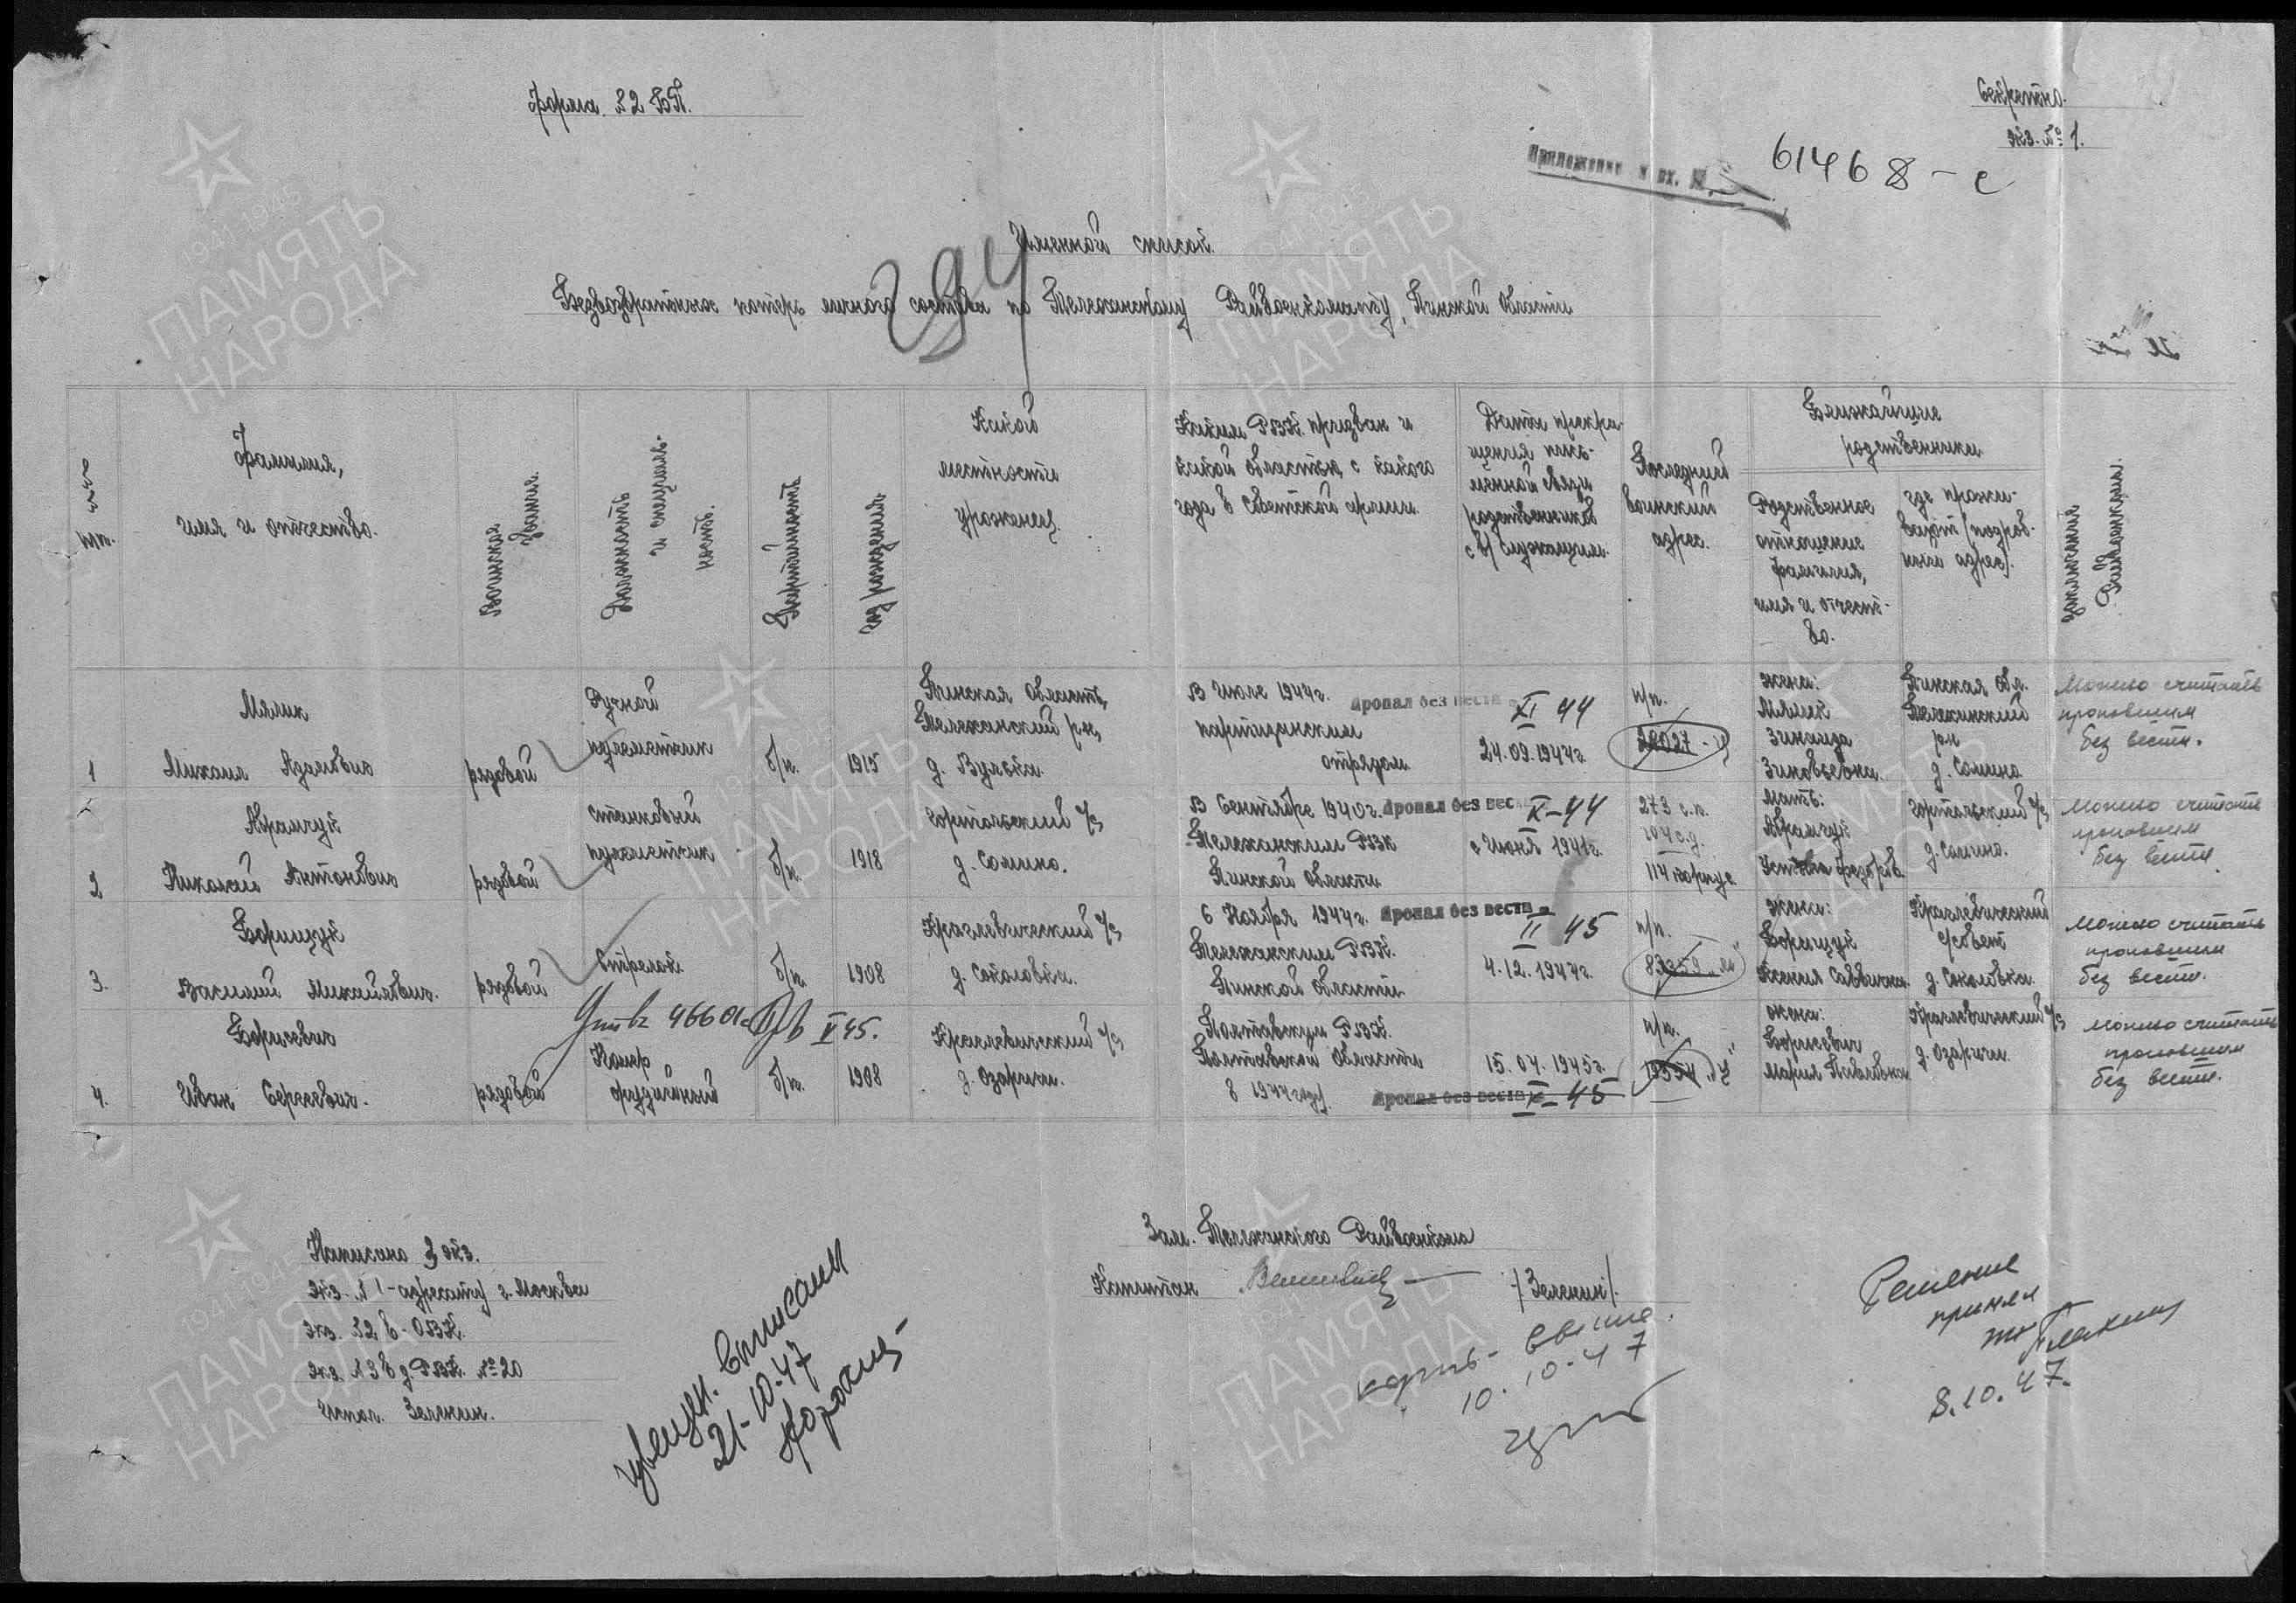 Форма №2 БП.
Секретно.
экз. № 1.
Приложение к вх. №
61468-с
Именной список
294
Безвозвратных потерь личного состава по Телеханскому Райвоенкомату, Пинской области
№№ пп.
Фамилия,
имя и отчество.
Воинское звание.
Должность и специальность.
Партийность
год рождения
Какой
местности
уроженец.
Каким РВК призван и
какой области, с какого
года в Советской армии
Дата прекра-
щения пись-
менной связи
родственников
с в/служащим.
Последний
воинский
адрес.
Ближайшие
родственники
Родственное
отношение
фамилия,
имя и отчест-
во.
где прожи-
вает (подроб-
ный адрес).
Заключение Райвоенкома.
1
Малик
Михаил Адамович
рядовой
Ручной
пулеметчик
б/п.
1915
Пинская область,
Телеханский р-н,
д. Вулька.
В Июле 1944г.
партизанским
отрядом
Пропал без вести XI 44
24.09.1944г.
п/п.
28027-
жена:
Малик
Зинаида
Зиновьевна.
Пинская обл.
Телеханский
р-н
д. Сомино
Можно считать
пропавшим
без вести.
2
Абрамчук
Николай Антонович
рядовой
станковый
пулеметчик
б/п.
1918
Гортольский с/с,
д. Сомино.
В Сентябре 1940г.
Телеханским РВК
Пинской области
Пропал без вести X-44
Июня 1941г.
273 с.п.
104 с.д.
114 корпус
Мать:
Абрамчук
Гортольский с/с
д. Сомино.
Можно считать
пропавшим
без вести.
3.
Борищук
Василий Михайлович.
рядовой
Стрелок
б/п.
1908
Краглевический с/с,
д. Соколовка.
6 Ноября 1944г.
Телеханским РВК.
Пинской области
Пропал без вести II 45
4.12.1944г.
п/п.
жена:
Борищук
Ксения Саввична.
Краглевический
с/совет
д. Соколовка.
Можно считать
пропавшим
без вести.
4.
Борисевич
Иван Сергеевич.
рядовой
V 45.
Номер
орудийный
б/п.
1908
Краглевический с/с,
д. Озаричи.
Полтавским РВК.
Полтавской области
в 1944 году.
15.04.1945г.
Пропал без вести X-45
п/п.
жена:
Борисевич
Мария Павловна
Краглевический с/с
д. Озаричи.
Можно считать
пропавшим
без вести.
Написано 3 экз.
экз. №1-адресату г. Москва
экз. №2 в-ОВК.
экз. №3 в д. РВК. №20
Испол. Зеленин.
извещен. списали
21-10-47
Зам. Телеханского Райвоенкома
Капитан
/Зеленин/.
10.10-47
Решение
принял
8.10.47.
ПАМЯТЬ
НАРОДА
1941-1945